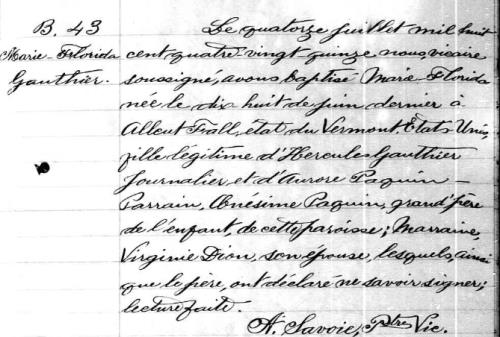 B. 43
Marie-Florida
Gauthier.
Le quatorze juillet mil huit
cent quatre-vingt quinze nous, vicaire
soussigné, avons baptisé Marie-Florida
née le dix huit de juin dernier à
Alleut Fall, état du Vermont, États Unis,
fille légitime d'Hercules Gauthier
Journalier, et d'Aurore Paquin -
Parrain, Onésime Paquin, grand'père
de l'enfant, de cette paroisse; Marraine,
Virginie Dion, son épouse, lesquels, ainsi
que le père, ont déclaré ne savoir signer;
lecture faite.
A. Savoie, Ptre Vic.